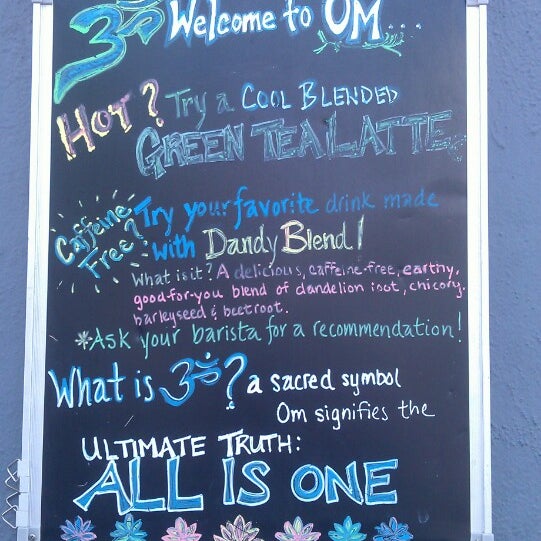 ॐ Welcome to OM...
HOT? Try a COOL BLENDED
GREEN TEA LATTE
Caffeine Free? Try your favorite drink made
with Dandy Blend!
What is it? A delicious, caffeine-free, earthy,
good-for-you blend of dandelion root, chicory,
barleyseed & beetroot.
*Ask your barista for a recommendation!
What is ॐ? a sacred symbol
Om signifies the
ULTIMATE TRUTH:
ALL IS ONE